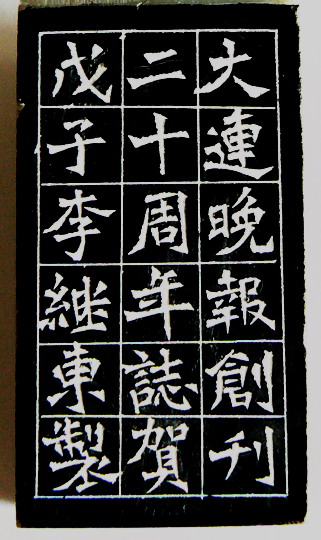 大連晚報創刊
二十周年誌賀
戊子李継東製